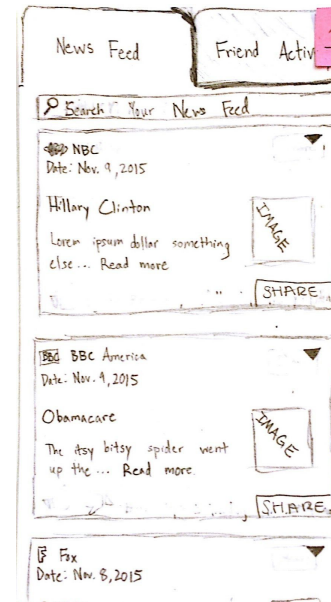 News Feed
Friend Activ
Search Your News Feed
NBC
Date: Nov. 9, 2015
Hillary Clinton
IMAGE
Lorem ipsum dollar something
else... Read more
SHARE
BBC BBC America
Date: Nov. 9, 2015
Obamacare
IMAGE
The itsy bitsy spider went
up the ... Read more
SHARE
F Fox
Date: Nov. 8, 2015